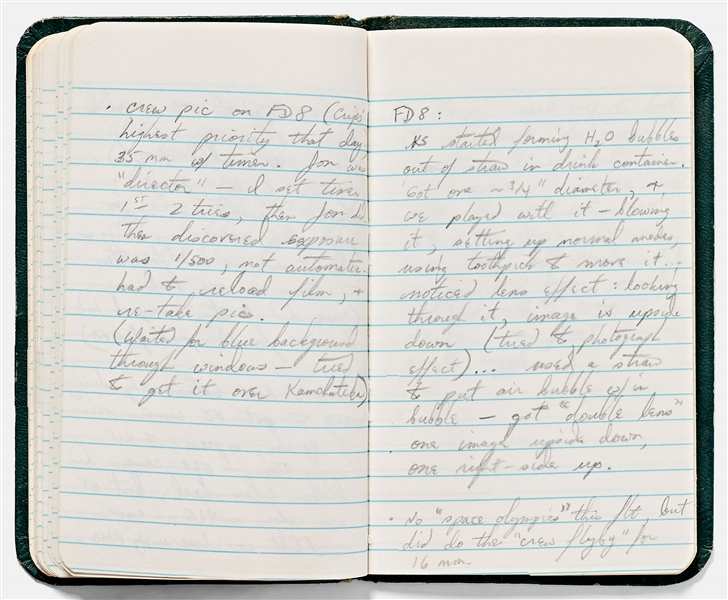 · crew pic on FD8 (Crip's
highest priority that day,
35 mm w/ timer. Jon was
"director" – I set timer
1st 2 tries, then Jon did.
Then discovered exposure
was 1/500, not automatic.
had to reload film, +
re-take pics.
(Waited for blue background
through windows – tried
to get it over Kamchatka)
FD8:
KS started forming H₂O bubbles
out of straw in drink container.
Got one ~ 3/4" diameter, +
we played with it – blowing
it, setting up normal modes,
using toothpick to move it...
noticed lens effect: looking
through it, image is upside
down, (tried to photograph
effect)... used a straw
to put air bubble w/in
bubble – got "double lens"
one image upside down,
one right-side up.
· No "space olympics" this flt, but
did do the "crew flyby" for
16 mm.